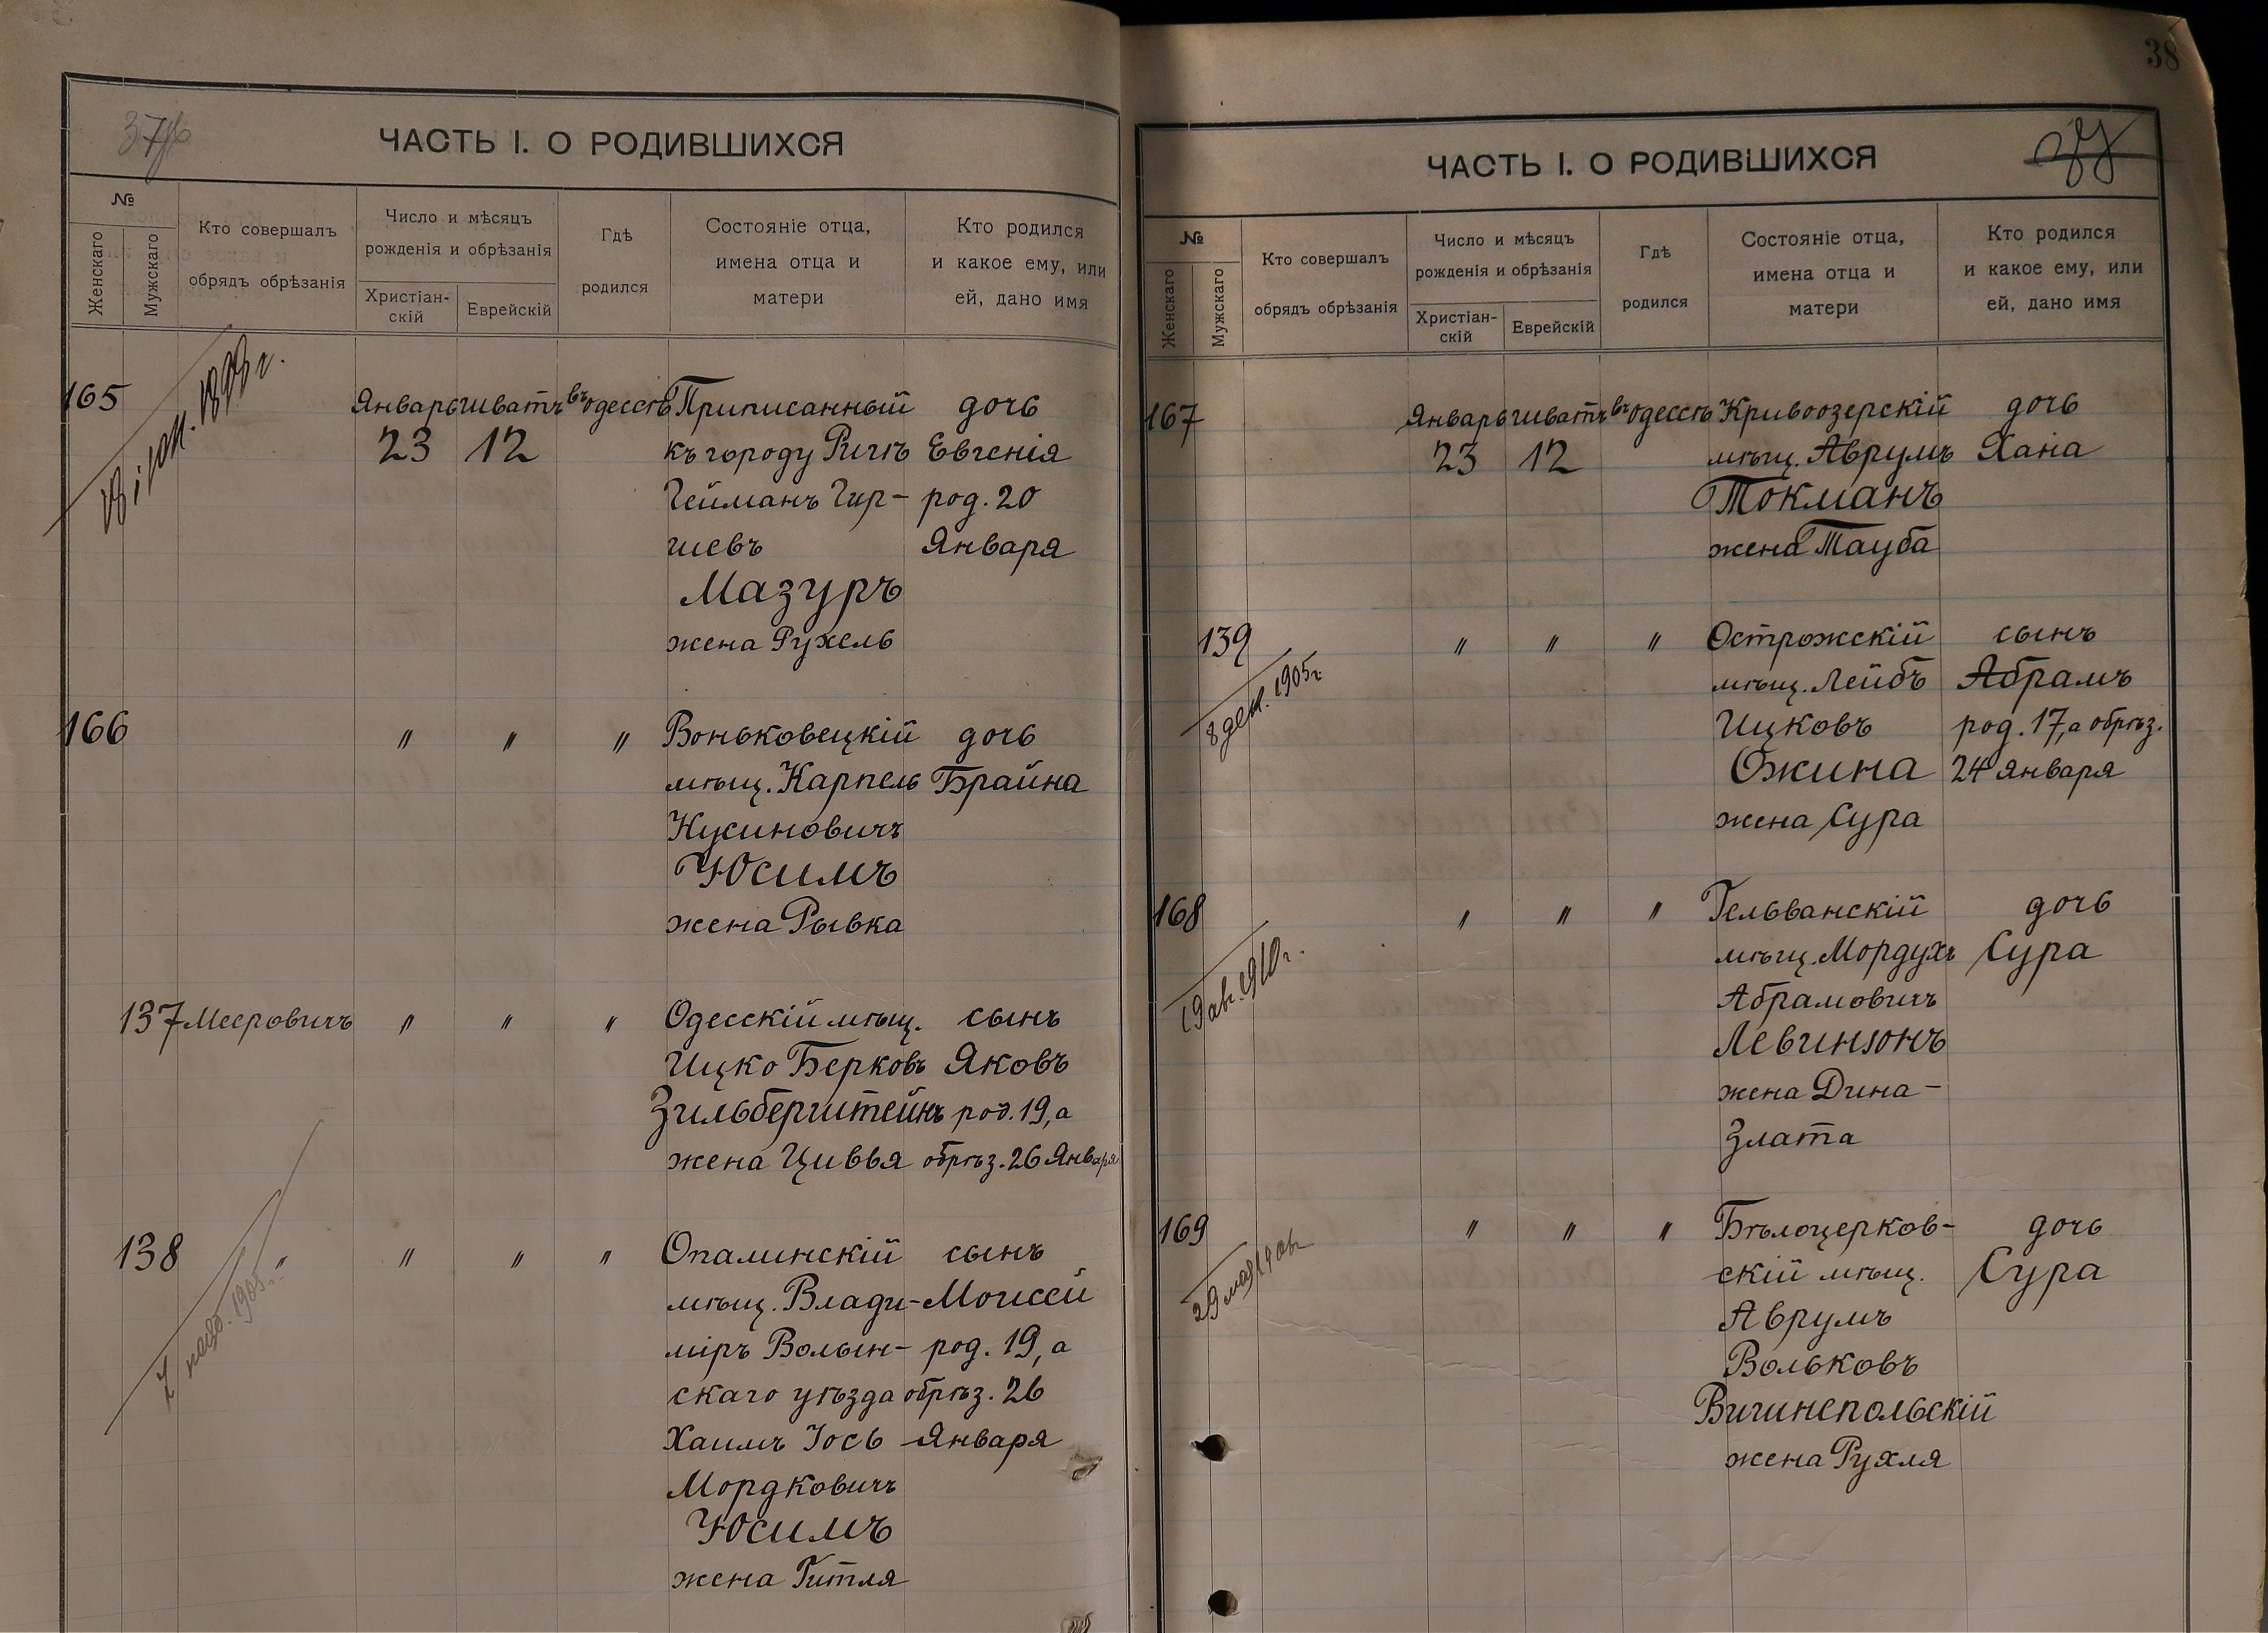 ЧАСТЬ I. О РОДИВШИХСЯ
№
Женскаго
Мужскаго
Кто совершалъ
обрядъ обрѣзанія
Число и мѣсяцъ
рожденія и обрѣзанія
Христіан-
скій
Еврейскій
Гдѣ
родился
Состояніе отца,
имена отца и
матери
Кто родился
и какое ему, или
ей, дано имя
165 Январь шватъ въ Одессѣ Приписанный дочь
23 12 къ городу Ригѣ Евгенія
Гейманъ Гир- род. 20
шевъ Января
Мазуръ
жена Рухель
166 " " " Воньковецкій дочь
мѣщ. Карпель Брайна
Нусиновичъ
Юсимъ
жена Рывка
137 Мееровичъ " " " Одесскій мѣщ. сынъ
Ицко Берковъ Яковъ
Зильберштейнъ род. 19, а
жена Цивья обрѣз. 26 Января
138 " " " " Опалинскій сынъ
мѣщ. Влади- Моисей
міръ Волын- род. 19, а
скаго уѣзда обрѣз. 26
Хаимъ Іось Января
Мордковичъ
Юсимъ
жена Гитля
38
ЧАСТЬ I. О РОДИВШИХСЯ
№
Женскаго
Мужскаго
Кто совершалъ
обрядъ обрѣзанія
Число и мѣсяцъ
рожденія и обрѣзанія
Христіан-
скій
Еврейскій
Гдѣ
родился
Состояніе отца,
имена отца и
матери
Кто родился
и какое ему, или
ей, дано имя
167 Январь шватъ въ Одессѣ Кривоозерскій дочь
23 12 мѣщ. Аврумъ Хана
Токманъ
жена Тауба
139 " " " Острожскій сынъ
мѣщ. Лейбъ Абрамъ
8 дек. 1905 г.
Ицковъ род. 17, а обрѣз.
Ожина 24 Января
жена Сура
168 " " " Гельванскій дочь
мѣщ. Мордухъ Сура
19 авг. 1910 г.
Абрамовичъ
Левинзонъ
жена Дина-
Злата
169 " " " Бѣлоцерков- дочь
скій мѣщ. Сура
29 мая
Аврумъ
Вольковъ
Вишнепольскій
жена Рухля